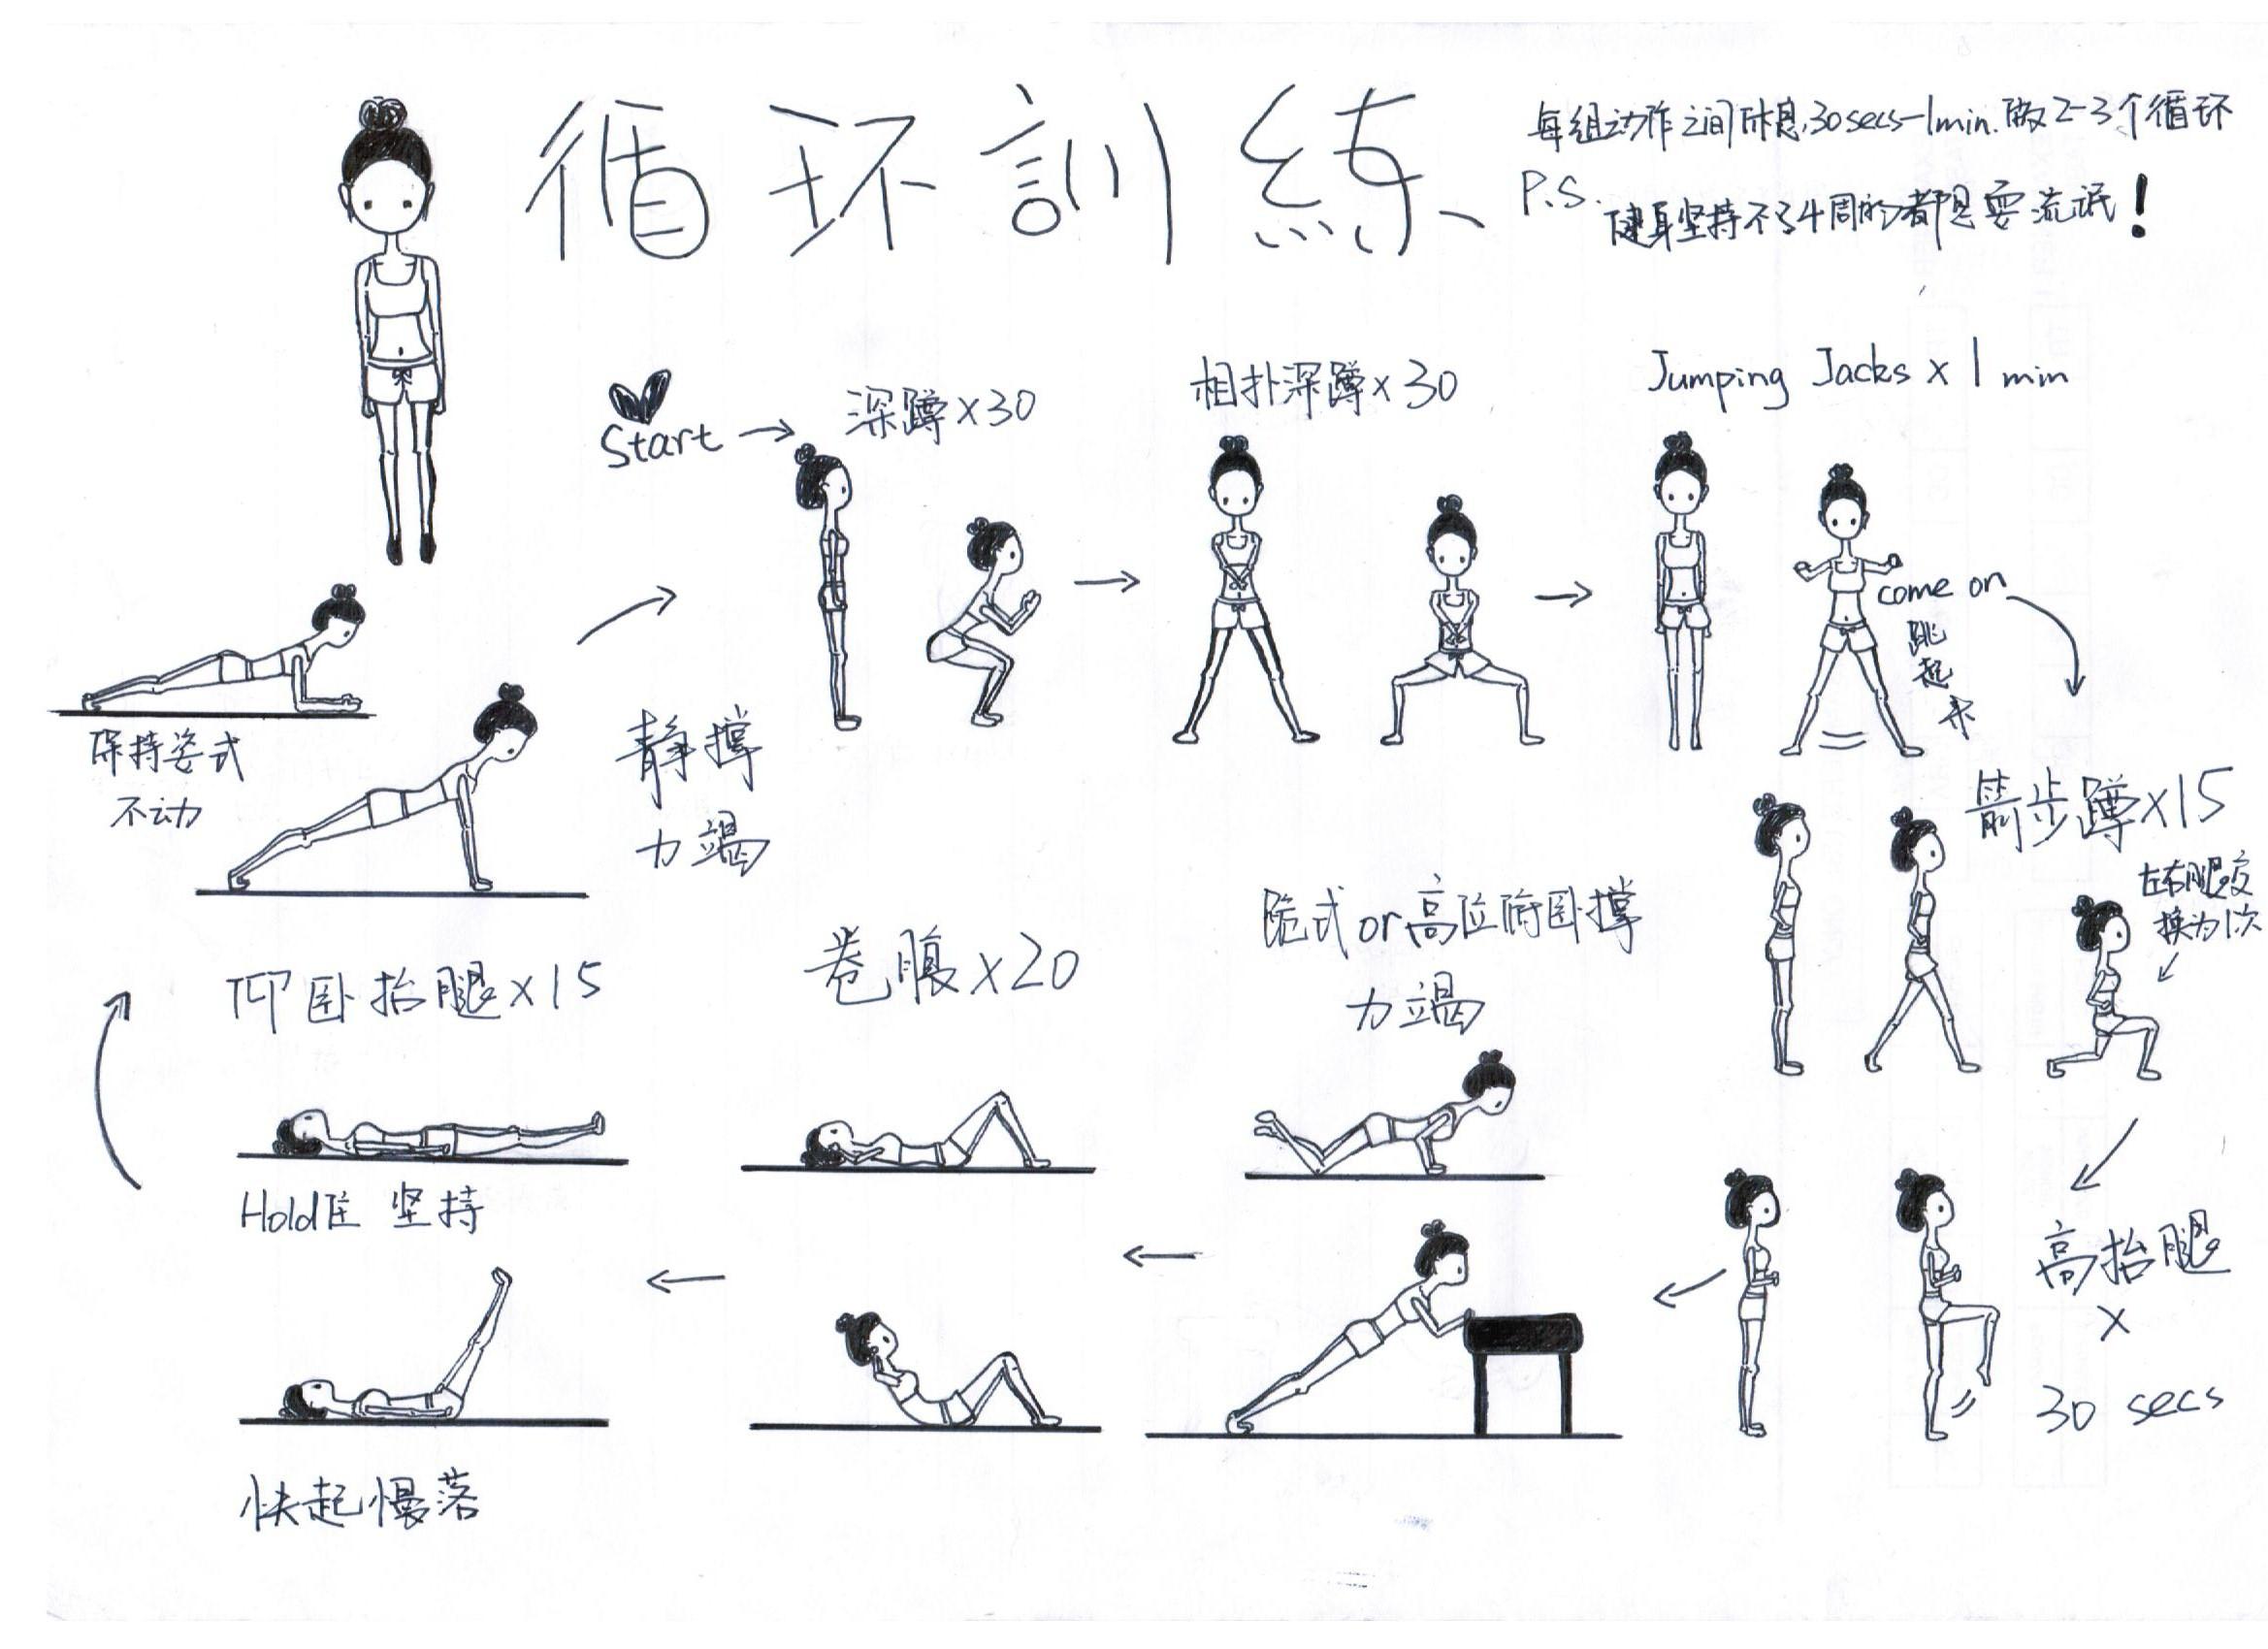 循环訓練
每组动作之间休息30secs-1min.做2-3个循环
P.S.
健身坚持不了4周的都是耍流氓!
Start
深蹲×30
相扑深蹲×30
Jumping Jacks × 1 min
come on
跳起来
箭步蹲×15
左右腿交
换为1次
高抬腿
×
30 secs
跪式or高位俯卧撑
力竭
卷腹×20
仰卧抬腿×15
Hold住 坚持
快起慢落
静撑
力竭
保持姿式
不动